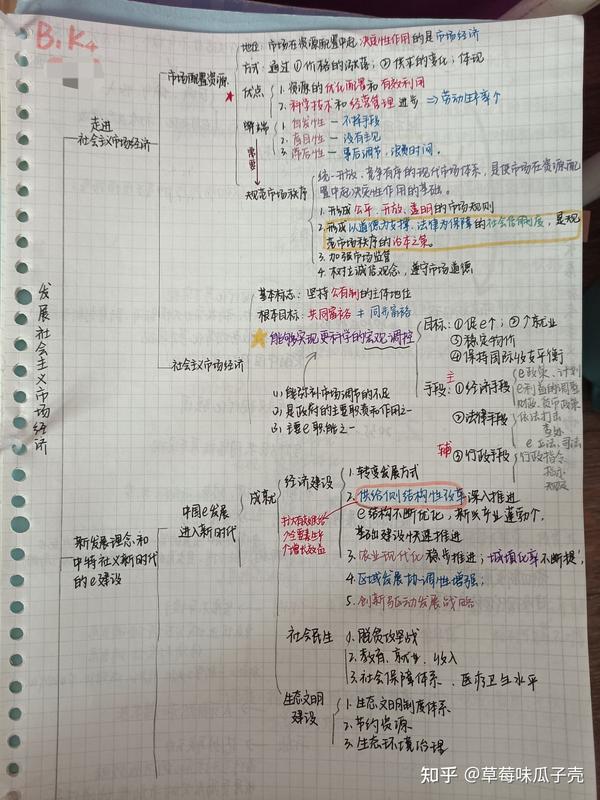 B.K₄
地位:市场在资源配置中起决定性作用的是市场经济
方式:通过①价格的涨落;②供求的变化;体现
市场配置资源
优点
1. 资源的优化配置和有效利用
2. 科学技术和经营管理进步 ⇒ 劳动生产率个
走进
社会主义市场经济
弊端
1. 自发性 — 不择手段
2. 盲目性 — 没有主见
3. 滞后性 — 事后调节,浪费时间。
需要
规范市场秩序
统一开放、竞争有序的现代市场体系,是使市场在资源配
置中起决定性作用的基础。
1. 形成公平、开放、透明的市场规则
2. 形成以道德为支撑、法律为保障的社会信用制度,是规
范市场秩序的治本之策。
3. 加强市场监管
4. 树立诚信观念,遵守市场道德
发展社会主义市场经济
基本标志:坚持公有制的主体地位
根本目标:共同富裕 ≠ 同步富裕
能够实现更科学的宏观调控
社会主义市场经济
目标:①促e个;②个就业
③稳定物价
④保持国际收支平衡
(1) 能弥补市场调节的不足
(2) 是政府的主要职责和作用之一
(3) 主要e职能之一
手段:
主
①经济手段
e政策、计划
e利益的调整
财政、货币政策
②法律手段
依法打击
e立法、司法
辅
③行政手段
行政指令、
指示
新发展理念和
中特社义新时代
的e建设
中国e发展
进入新时代
成就
经济建设
1. 转变发展方式
2. 供给侧结构性改革深入推进
e结构不断优化,新兴产业蓬勃个,
基础建设快速推进
3. 农业现代化稳步推进;城镇化率不断提↑
4. 区域发展协调性增强;
5. 创新驱动发展战略
社会民生
1. 脱贫攻坚战
2. 教育、就业、收入
3. 社会保障体系、医疗卫生水平
生态文明
建设
1. 生态文明制度体系
2. 节约资源
3. 生态环境治理
知乎 @草莓味瓜子壳